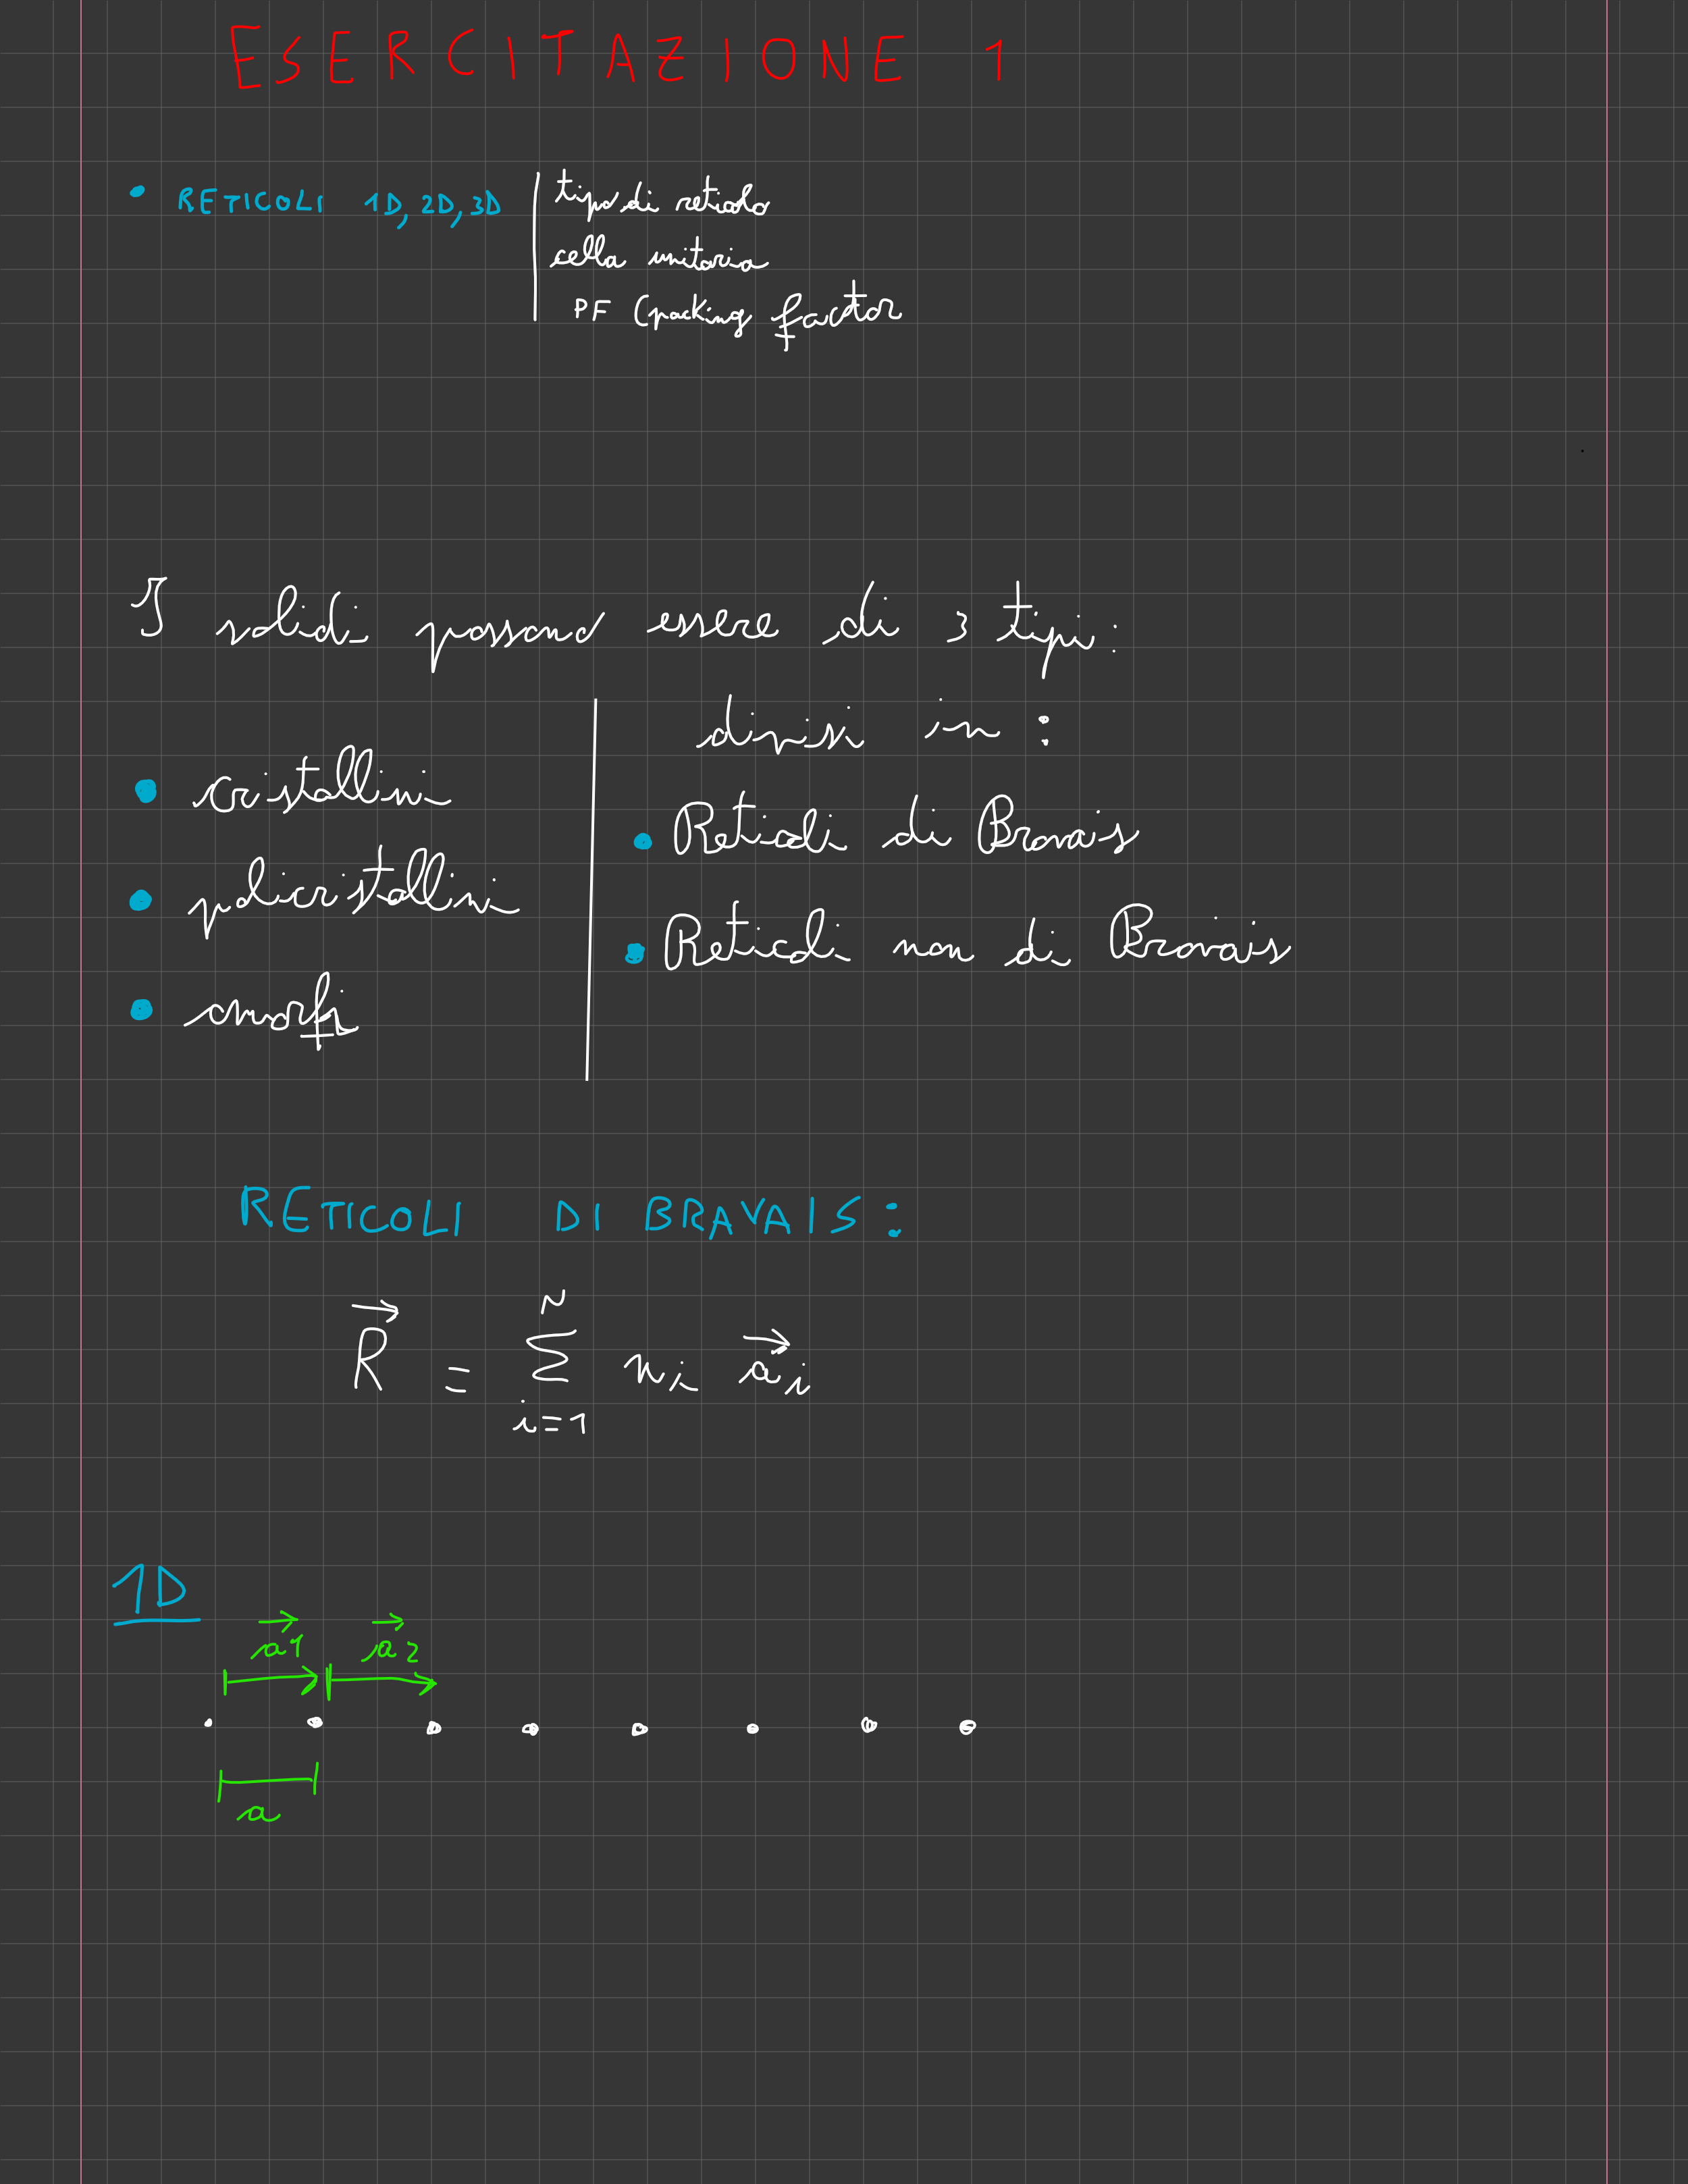 ESERCITAZIONE 1
• RETICOLI 1D, 2D, 3D
tipo di reticolo
cella unitaria
PF (packing factor
I solidi possono essere di 3 tipi:
• cristallini
• policristallini
• amorfi
divisi in:
• Reticoli di Bravais
• Reticoli non di Bravais
RETICOLI DI BRAVAIS:
R⃗ = Σ_{i=1}^{N} n_i a⃗_i
1D
a⃗1 a⃗2
a